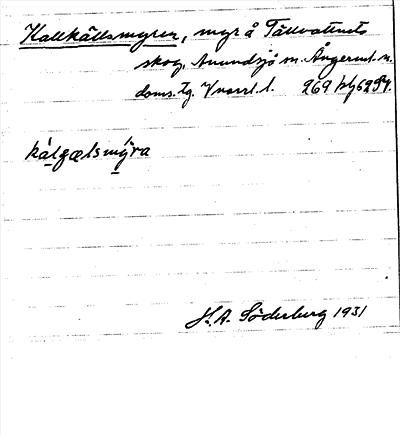 Kallkällsmyren, myr å Tällvattnets
skog, Anundsjö sn. Ångerml. n.
doms. tg. V norrl. l.
kálgælsmýra
H. A. Söderberg 1931